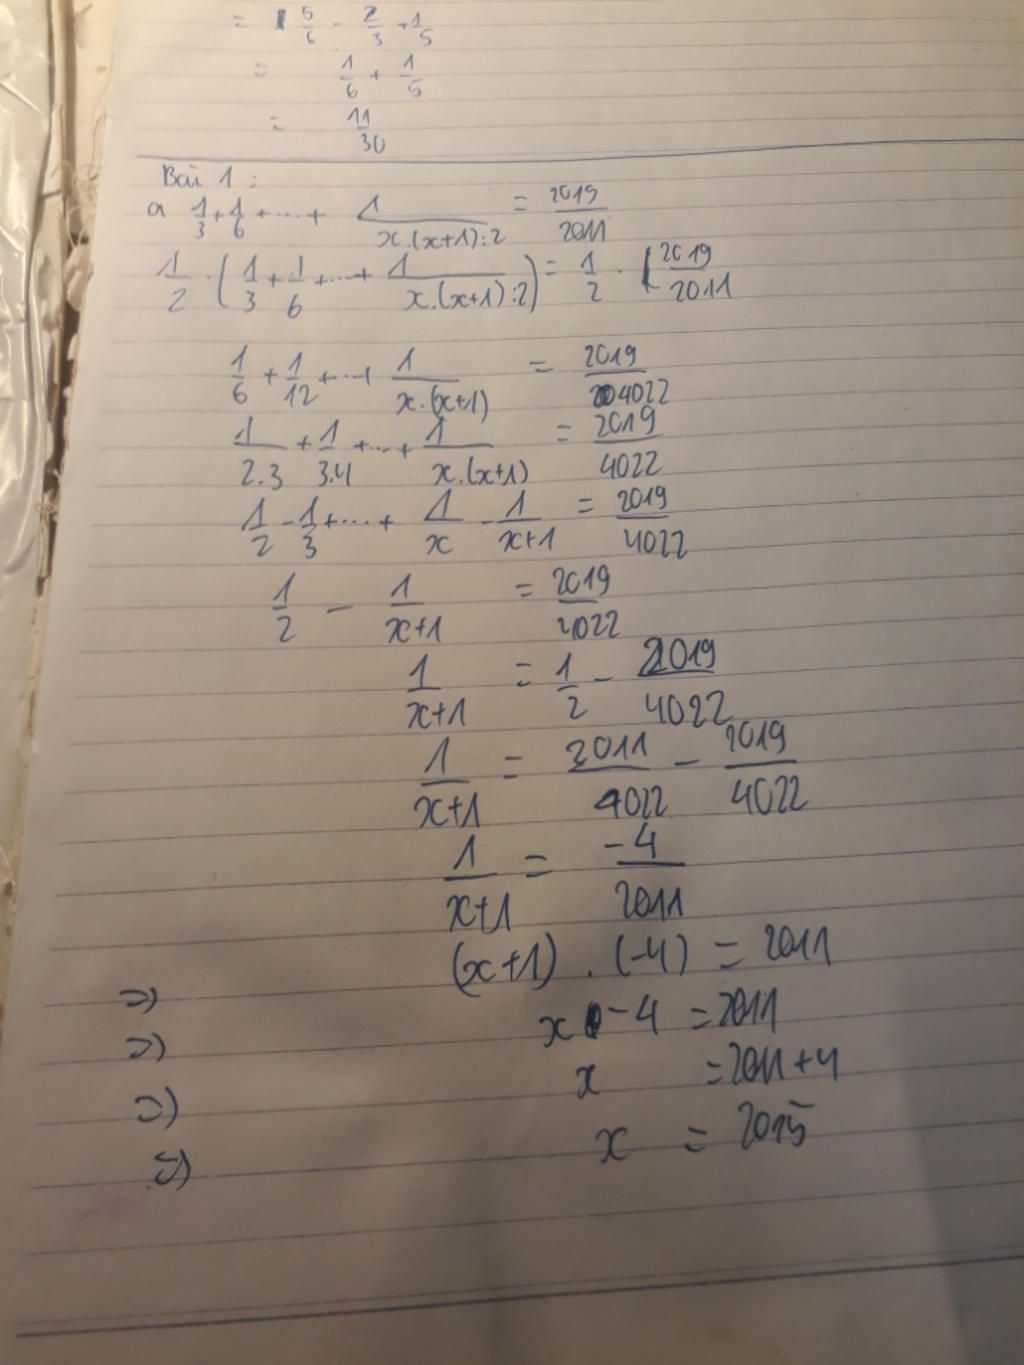 = 5/6 - 2/3 + 1/5
= 1/6 + 1/5
= 11/30
Bài 1 :
a 1/3 + 1/6 + .... + 1/x.(x+1):2 = 2019/2011
1/2 . (1/3 + 1/6 + ... + 1/x.(x+1):2) = 1/2 . (2019/2011
1/6 + 1/12 + .... + 1/x.(x+1) = 2019/4022
1/2.3 + 1/3.4 + ... + 1/x.(x+1) = 2019/4022
1/2 - 1/3 + .... + 1/x - 1/x+1 = 2019/4022
1/2 - 1/x+1 = 2019/4022
1/x+1 = 1/2 - 2019/4022
1/x+1 = 2011/4022 - 2019/4022
1/x+1 = -4/2011
=) (x+1) . (-4) = 2011
=) x - 4 = 2011
=) x = 2011+4
=) x = 2015